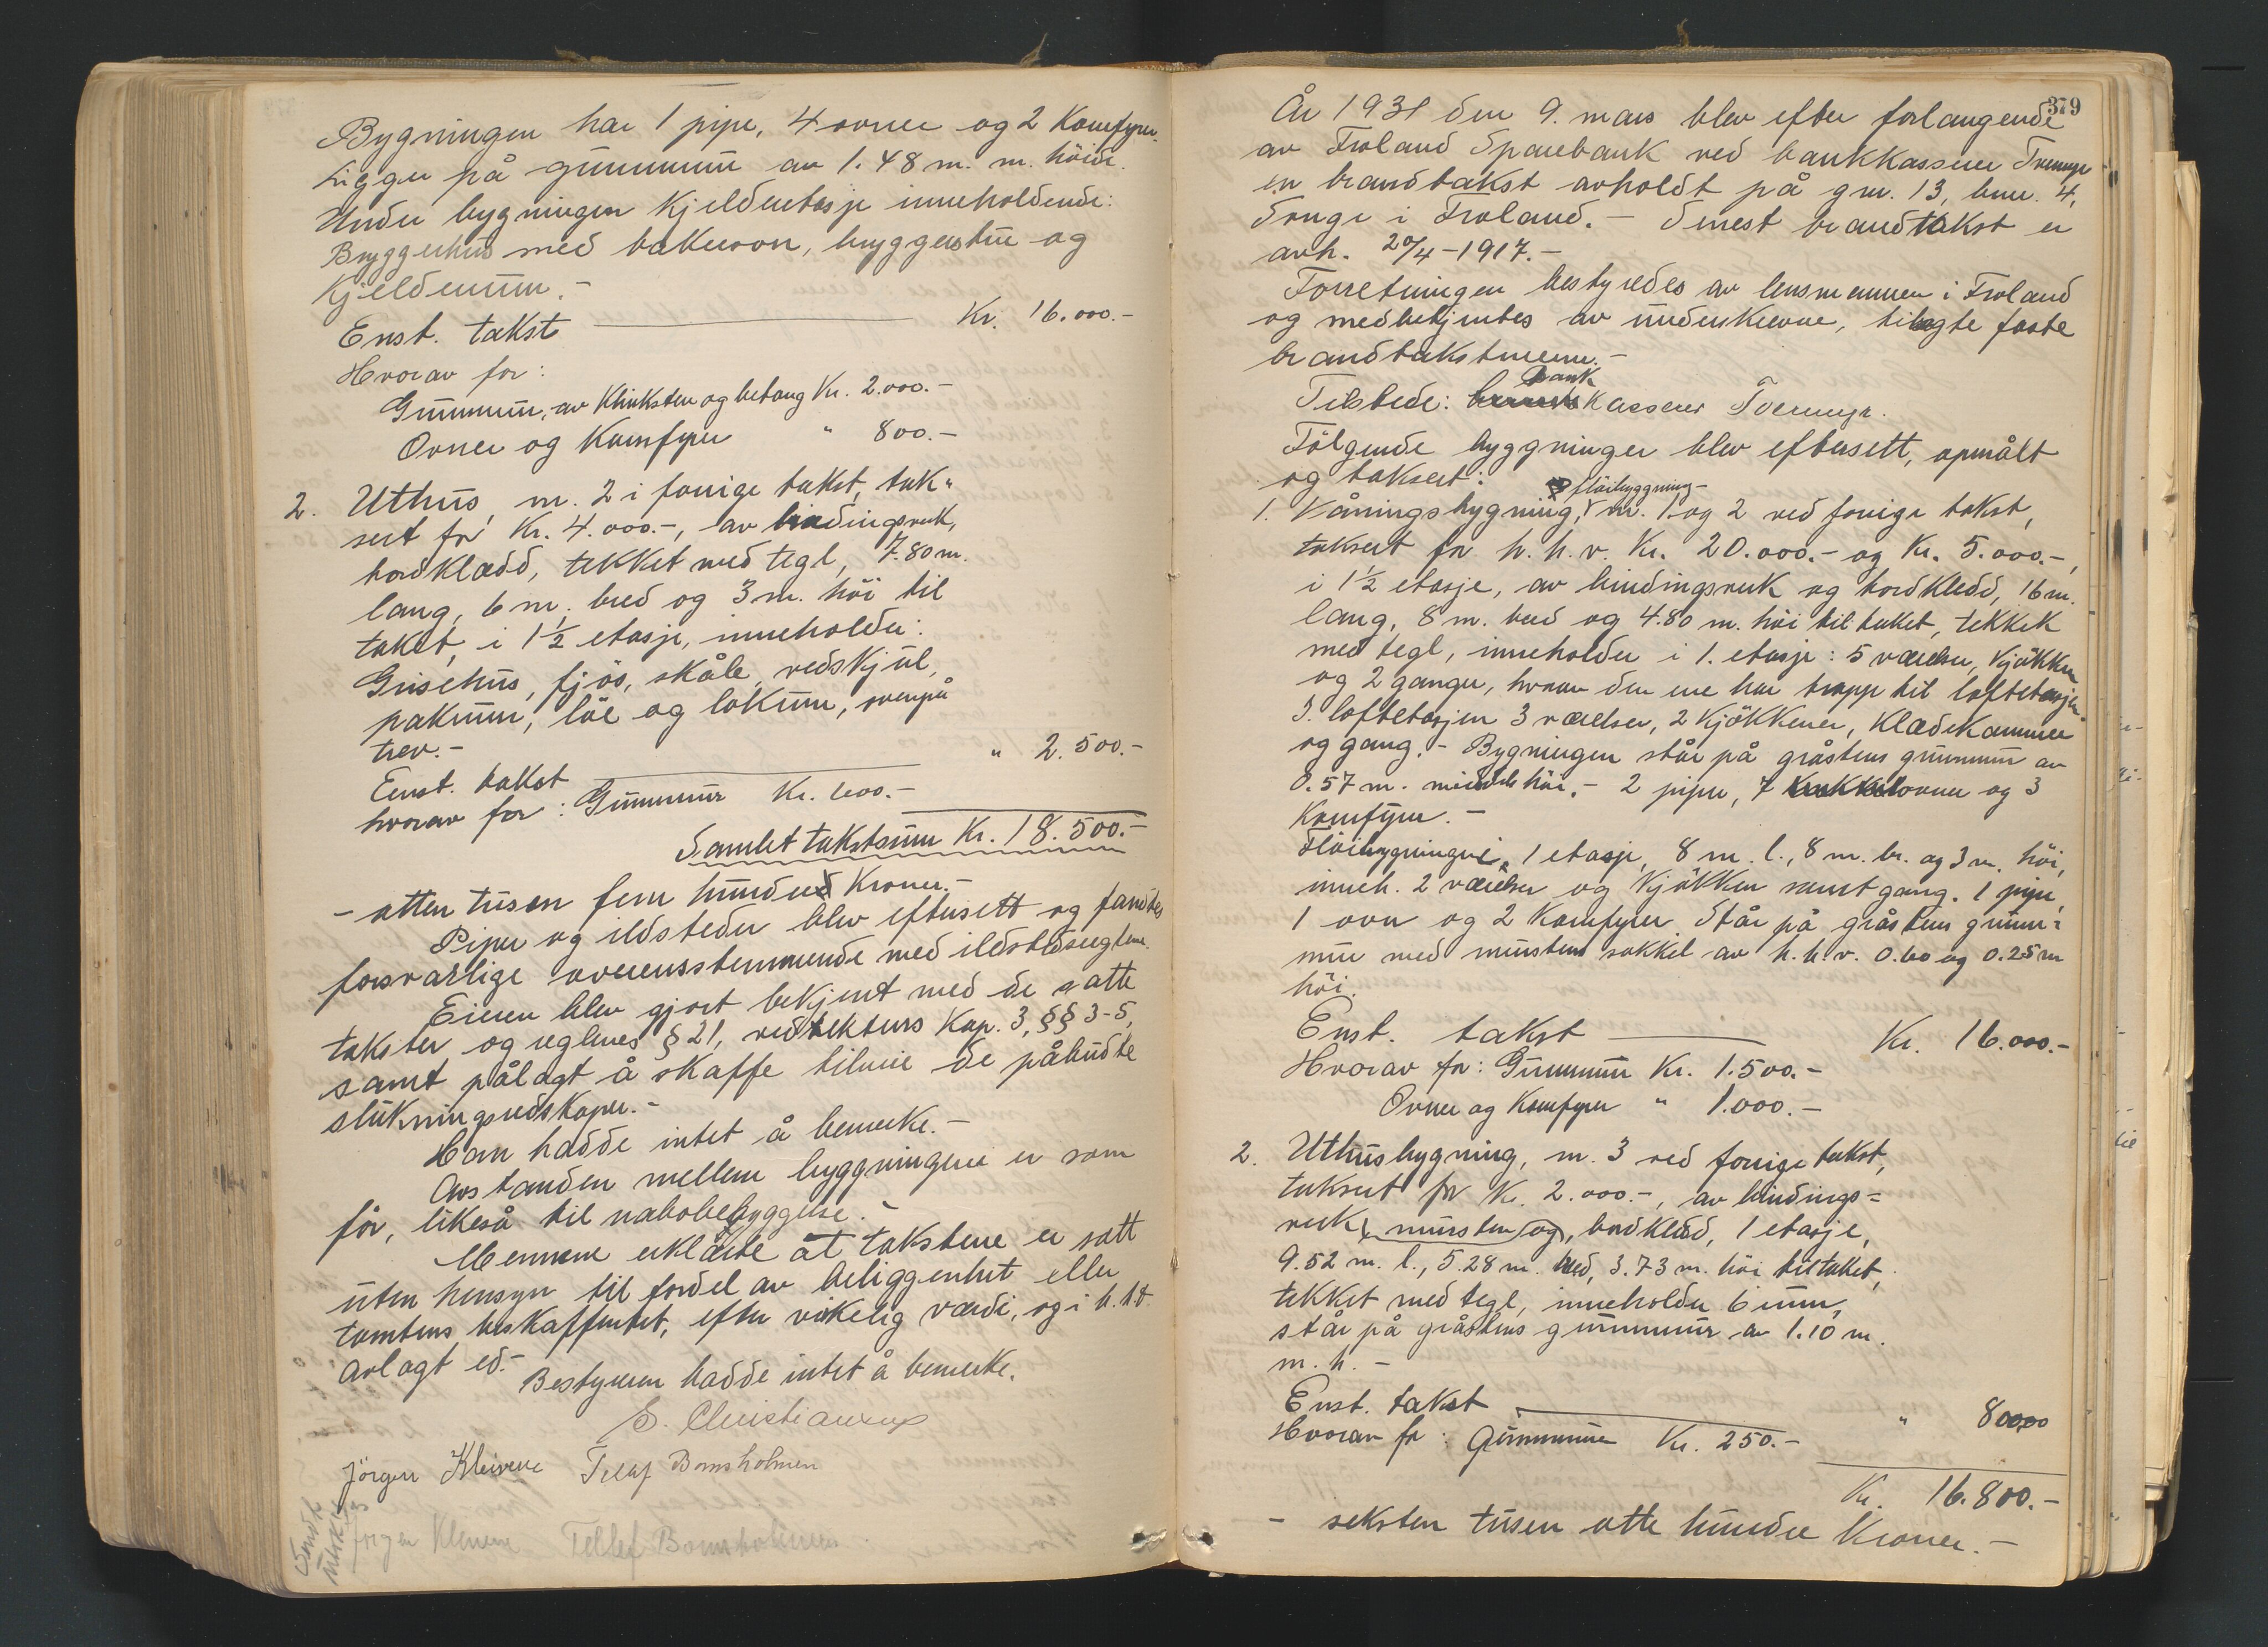 Bygningen har 1 pipe, 4 ovner og 2 Komfyrer.
Ligger på grunnmur av 1.48 m. m. höide.
Under bygningen Kjelderetasje inneholdende:
Bryggerhus med bakerovn, bryggerstue og
Kjelderrum.-
Enst. takst Kr. 16.000.-
Hvorav for:
Grunnmur, av Klinksten og betong Kr. 2.000.-
Ovner og Komfyrer " 800.-
2. Uthus, nr. 2 i forrige takst, tak-
sert for Kr. 4.000.-, av bindingsverk,
bordklædd, tekket med tegl, 7.80 m.
lang, 6 m. bred og 3 m. höi til
taket, i 1½ etasje, inneholder:
Grisehus, fjös, skåle, vedskjul,
pakrum, löe og lokum, ovenpå
trev.-
Enst. takst " 2.500.-
hvorav for: Grunnmur Kr. 600.-
Samlet takstsum Kr. 18.500.-
- atten tusen fem hundred Kroner.-
Piper og ildsteder blev eftersett og fandtes
forsvarlige overensstemmende med ildstedsreglene.
Eieren blev gjort bekjent med de satte
takster og reglenes § 21, vedtekters Kap. 3, §§ 3-5,
samt pålagt å skaffe tilveie de påbudte
slukningsredskaper.-
Han hadde intet å bemerke.-
Avstanden mellem byggningene er som
för, likeså til nabobebyggelse.-
Mennene erklærte at takstene er satt
uten hensyn til fordel av beliggenhet eller
tomtens beskaffenhet, efter virkelig værdi, og i h.t.
avlagt ed.-
Bestyreren hadde intet å bemerke.
S. Christiansen
Jörgen Kleivene Tellef Bomsholmen
Sendt
utskr
Jörgen Kleivene Tellef Bomsholmen
379
År 1931 den 9. mars blev efter forlangende
av Froland Sparebank ved bankkasserer Tveimyr
en brandtakst avholdt på gnr. 13, bnr. 4,
Songe i Froland.- Senest brandtakst er
avh. 20/4-1917.-
Forretningen bestyredes av lensmannen i Froland
og medbetjentes av underskrevne, tilsagte faste
brandtakstmenn.-
Tilstede: bank Kasserer Tveimyr.
Fölgende byggninger blev eftersett, opmålt
og taksert:
flöibyggning-
1. Våningsbygning, nr. 1 og 2 ved forrige takst,
taksert for h.h.v. Kr. 20.000.- og Kr. 5.000.-,
i 1½ etasje, av bindingsverk og bordkledd, 16 m.
lang, 8 m. bred og 4.80 m. höi til taket, tekket
med tegl, inneholder i 1. etasje: 5 værelser, Kjökken
og 2 ganger, hvorav den ene har trapp til loftetasjen
I loftetasjen 3 værelser, 2 Kjökkener, Klædekammer
og gang.- Bygningen står på gråstens grunnmur av
0.57 m. middels höi.- 2 piper, 7 ovner og 3
Komfyrer.-
Flöibygningen i 1 etasje, 8 m. l., 8 m. br. og 3 m. höi,
inneh. 2 værelser og Kjökken samt gang. 1 pipe,
1 ovn og 2 Komfyrer. Står på gråstens grunn-
mur med murstens sokkel av h.h.v. 0.60 og 0.25 m
höi.
Enst. takst Kr. 16.000.-
Hvorav for: Grunnmur Kr. 1.500.-
Ovner og Komfyrer " 1.000.-
2. Uthusbygning, nr. 3 ved forrige takst,
taksert for K. 2.000.-, av bindings-
verk, mursten og, bordklædd, 1 etasje,
9.52 m. l., 5.28 m. bred, 3.73 m. höi til taket,
tekket med tegl, inneholder 6 rum,
står på gråstens grunnmur av 1.10 m.
m. h.-
Enst. takst " 800
Hvorav for: Grunnmur Kr. 250.-
Kr. 16.800.-
- seksten tusen otte hundre Kroner.-